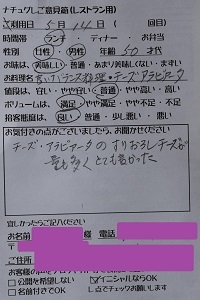 ナチュグしご意見箱(レストラン用)
ご利用日 5月14日 ( 回目)
時間帯 ランチ ・ ディナー ・ お弁当
性別 女性 ・ 男性 年齢 50 才代
お味は、美味しい・普通・あまり美味しくない
お料理名 ランス料理・チーズアラビアータ
値段は、安い・やや安い・普通・やや高い・高い
ボリュームは、満足・やや満足・やや不足・不足
接客態度は、良い・普通・少し悪い・悪い
お気付きの点がございましたら、お聞かせください
チーズ・アラビアータのすりおろしチーズが
量も多く とても良かった
宜しかったらご記入ください
お名前 様 電話
〒
ご住所
お客様の声をブログ
□公開を希望しない ☑イニシャルならOK
□名前付きでOK レ点でチェックお願いします